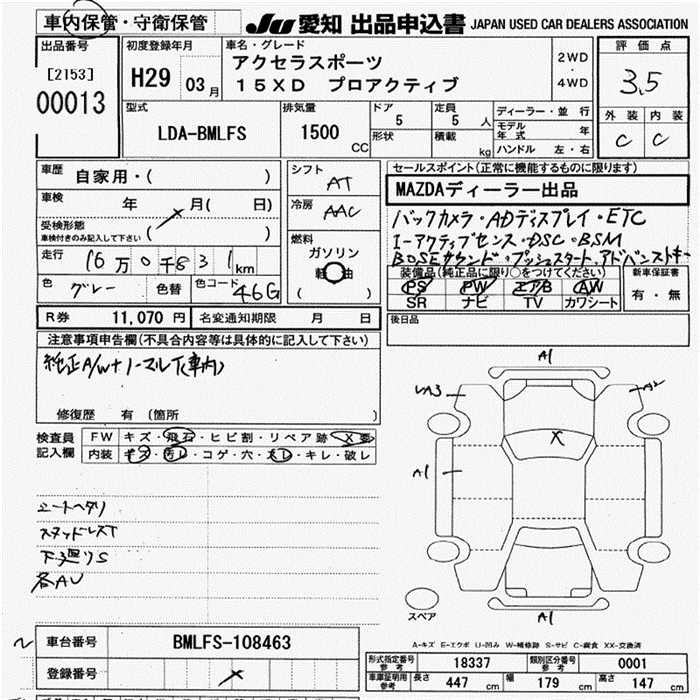 車内保管・守衛保管
JU 愛知 出品申込書 JAPAN USED CAR DEALERS ASSOCIATION
出品番号
[2153]
00013
初度登録年月
H29 03月
車名・グレード
アクセラスポーツ
15XD プロアクティブ
2WD
・
4WD
評価点
3.5
外装 内装
C C
型式
LDA-BMLFS
排気量
1500 CC
ドア 5
形状
定員 5 人
積載 kg
ディーラー・並行
モデル年式 年
ハンドル 左・右
車歴 自家用・( )
車検 年 月( 日)
受検形態
車検付きのみ記入して下さい ( )
走行 16万0千831km
色 グレー 色替 色コード 46G
シフト AT
冷房 AAC
燃料
ガソリン
軽油
( )
セールスポイント(正常に機能するものに限ります)
MAZDAディーラー出品
バックカメラ・ADディスプレイ・ETC
i-アクティブセンス・DSC・BSM
BOSEサウンド・プッシュスタート、アドバンストキー
装備品(純正品に限り○をつけてください)
PS PW エアB AW
SR ナビ TV カワシート
新車保証書
有・無
R券 11,070 円 名変通知期限 月 日
後日品
注意事項申告欄(不具合内容等は具体的に記入して下さい)
純正A/W+ノーマルT(車内)
修復歴 有 (箇所 )
検査員
記入欄
FW キズ・飛石・ヒビ割・リペア跡・X要
内装 キズ・汚レ・コゲ・穴・スレ・キレ・破レ
シートヘタリ
スタッドレスT
下廻りS
各AU
A1
A3
A2
A1
X
A1
スペア
A-キズ E-エクボ U-凹み W-補修跡 S-サビ C-腐食 XX-交換済
車台番号 BMLFS-108463
登録番号
型式指定番号
参考
18337
類別区分番号
参考
0001
車庫証明用
参考
長さ 447 cm 幅 179 cm 高さ 147 cm